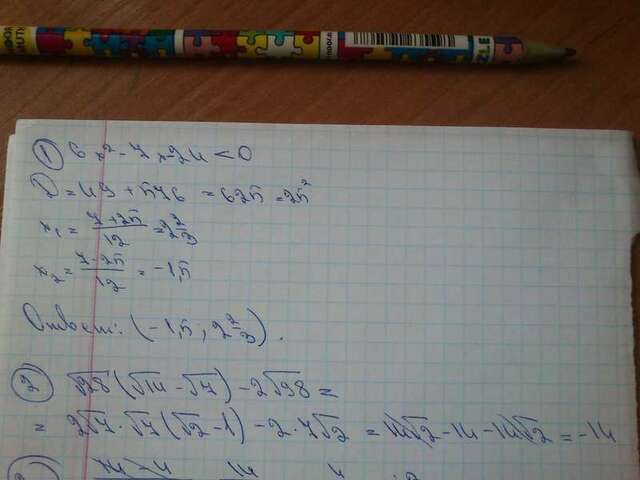 PUZZLE
① 6x²-7x-24<0
D=49+576=625=25²
x₁=(7+25)/12=2 2/3
x₂=(7-25)/12=-1,5
Ответ: (-1,5; 2 2/3).
② √28(√14-√7)-2√98=
=2√7·√7(√2-1)-2·7√2=14√2-14-14√2=-14